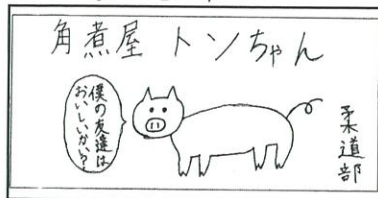 角煮屋 トンちゃん
僕の友達は
おいしいかい?
柔道部